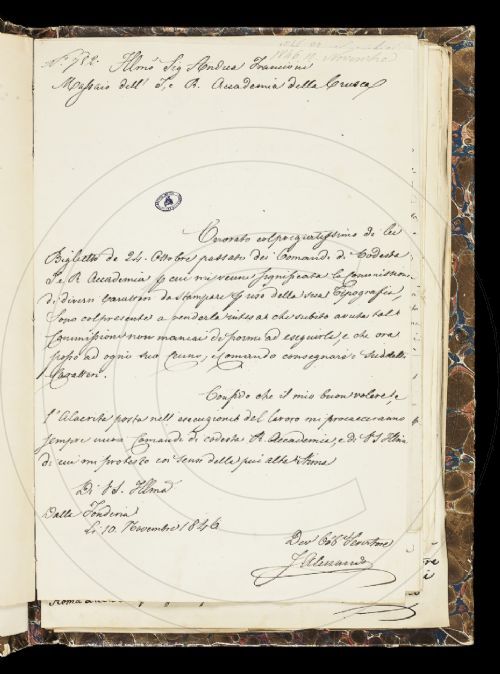 N° 782. Illmo Sig Andrea Francioni
Massaio dell' I. e R. Accademia della Crusca
1846
Novembre
Onorato col pregiatissimo di lei
Biglietto de 24. Ottobre passato dei Comandi di Codesta
I. e R. Accademia p cui mi venne significata la commissione
di diversi caratteri da stampare p uso della sua Tipografia,
sono col presente a renderla intesa che subito avuta tal
Commissione non mancai di pormi ad eseguirla, e che ora
posso ad ogni suo Comando consegnare i suddetti
Caratteri.
Confido che il mio buon volere, e
l'alacrità posta nell' esecuzione del lavoro mi procacceranno
sempre nuovi Comandi di codesta R. Accademia, e di VS Illma
di cui mi protesto coi sensi della più alta Stima
Di VS. Illma
Dalla Fonderia
Li 10. Novembre 1846
Dev Obb Servitore
J Alessandri
Roma